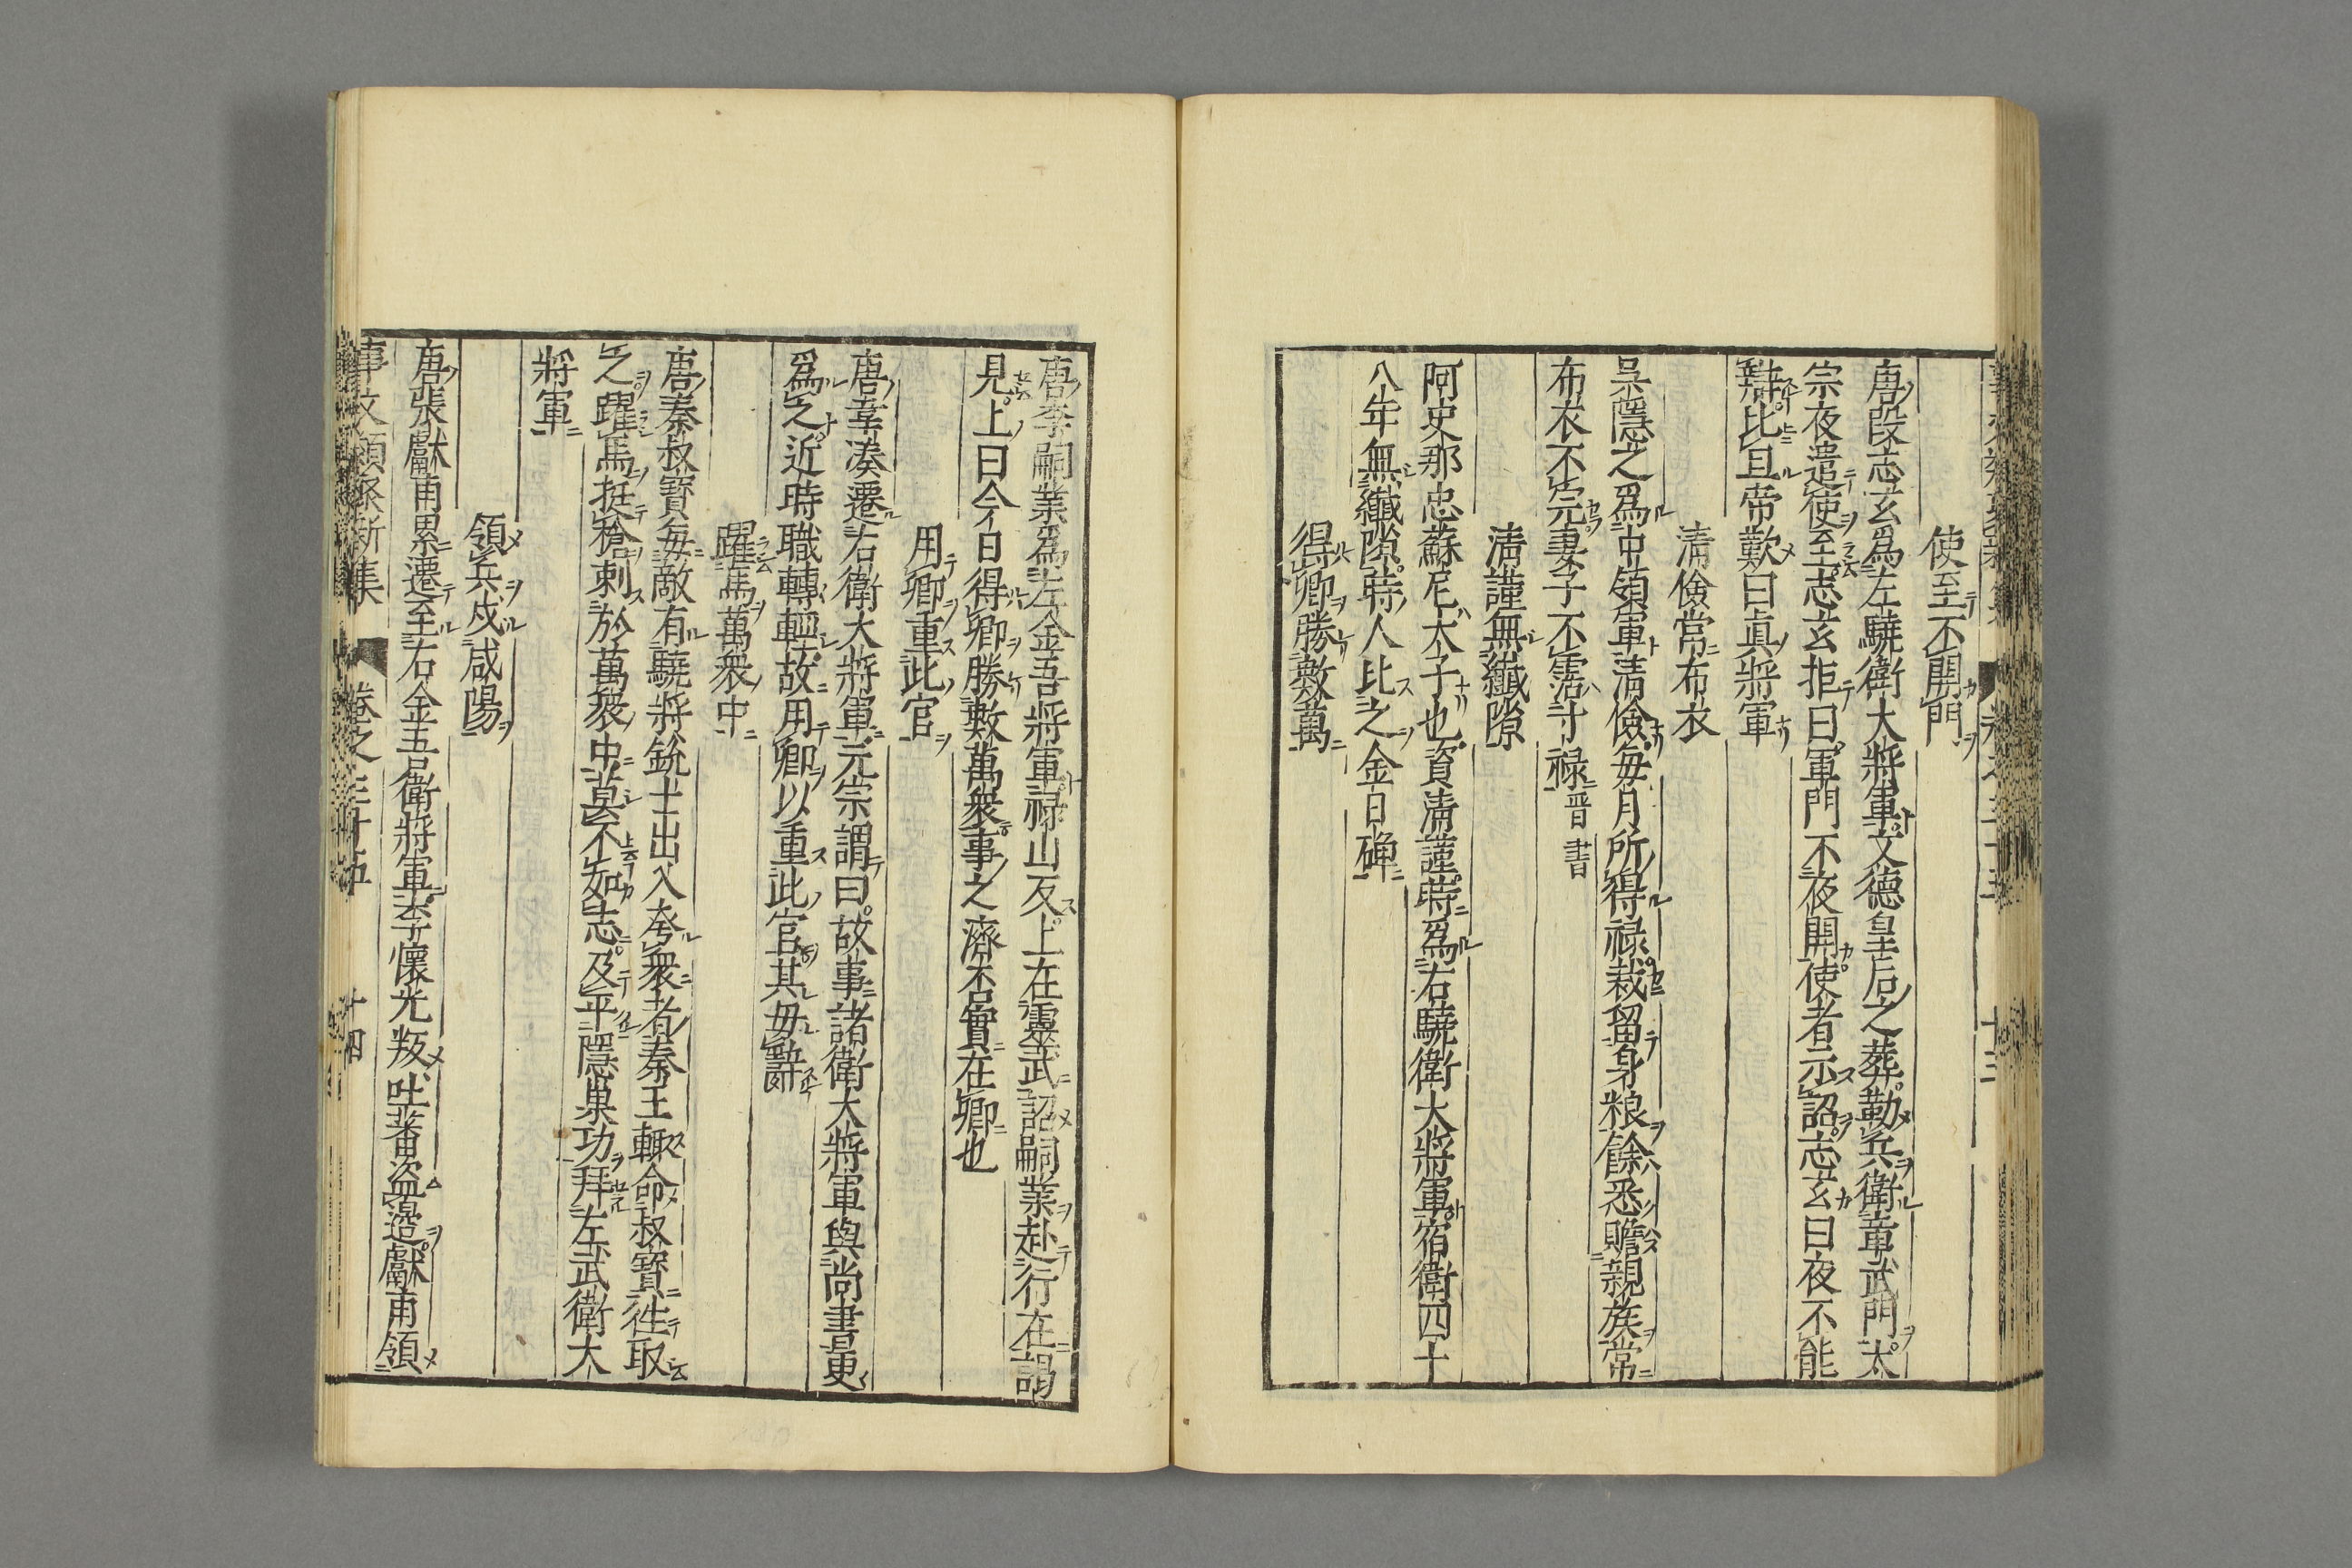 使至不開門
唐段志玄爲左驍衛大將軍文德皇后之葬勒兵衛章武門太
宗夜遣使至志玄拒曰軍門不夜開使者示詔志玄曰夜不能
辯比旦帝歎曰眞將軍
清儉常布衣
吴隱之爲中領軍清儉毎月所得禄裁留身粮餘悉贍親族常
布衣不完妻子不霑寸禄晋書
清謹無纖隙
阿史那忠蘇尼太子也資清謹時爲右驍衛大將軍宿衛四十
八年無纖隙時人比之金日磾
得卿勝數萬
唐李嗣業爲左金吾將軍禄山反上在靈武詔嗣業赴行在謁
見上曰今日得卿勝數萬衆事之濟否實在卿也
用卿重此官
唐韋湊遷右衛大將軍元宗謂曰故事諸衛大將軍與尚書更
爲之近時職轉輕故用卿以重此官其毋辭
躍馬萬衆中
唐秦叔寳毎敵有驍將銳士出入夸衆者秦王輙命叔寳徃取
之躍馬挺槍刺於萬衆中莫不如志及平隱巢功拜左武衛大
將軍
領兵戍咸陽
唐張獻甫累遷至右金吾衛將軍李懷光叛吐蕃盗邉獻甫領
事文類聚新集 卷之三十五 十四